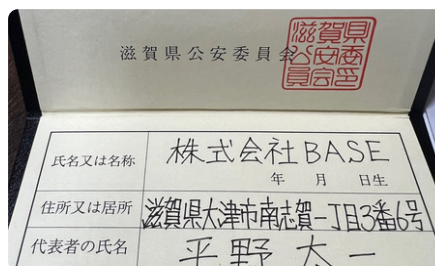 滋賀県公安委員会
滋賀県公安委員会印
氏名又は名称 株式会社BASE
年 月 日生
住所又は居所 滋賀県大津市南志賀一丁目3番6号
代表者の氏名 平野太一